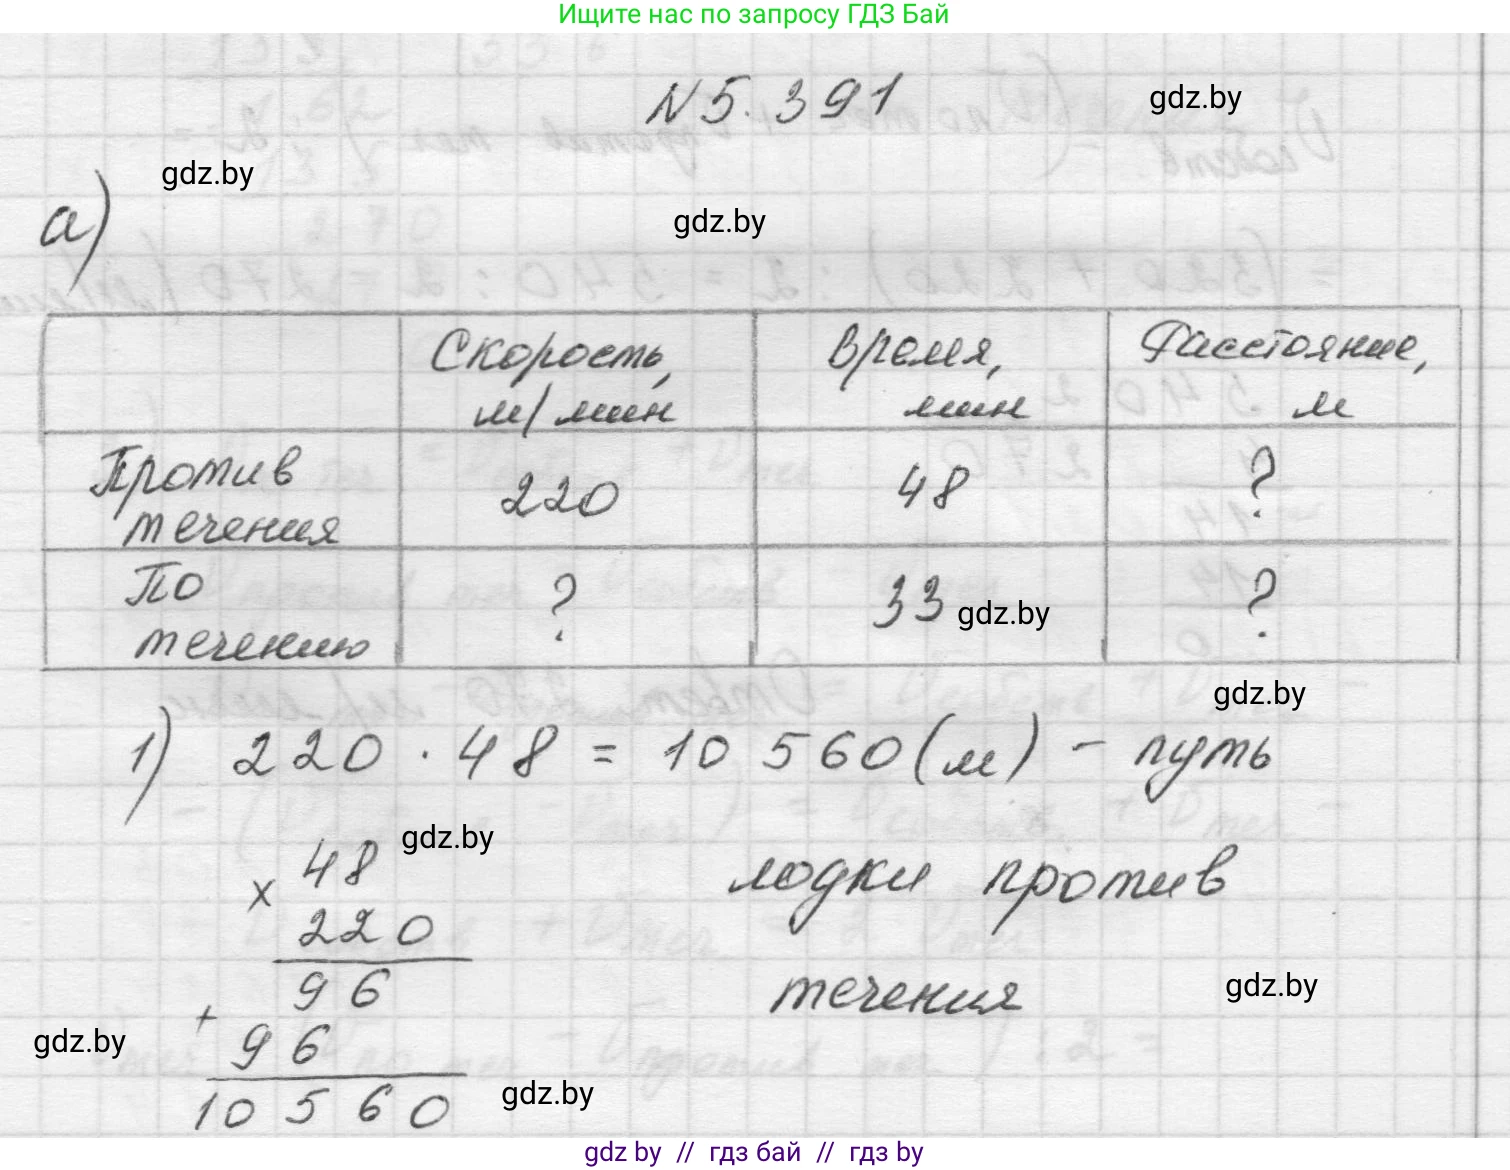 Ищите нас по запросу ГДЗ Бай
N 5.391
gdz.by
gdz.by
gdz.by
а)
Скорость, м/мин
Время, мин
Расстояние, м
Против течения
220
48
?
По течению
?
33
?
gdz.by
gdz.by
1) 220 · 48 = 10 560 (м) – путь
лодки против
течения
gdz.by
48
×
220
96
+
96
10 560
gdz.by
gdz.by
gdz.by
gdz by // гдз бай // gdz by